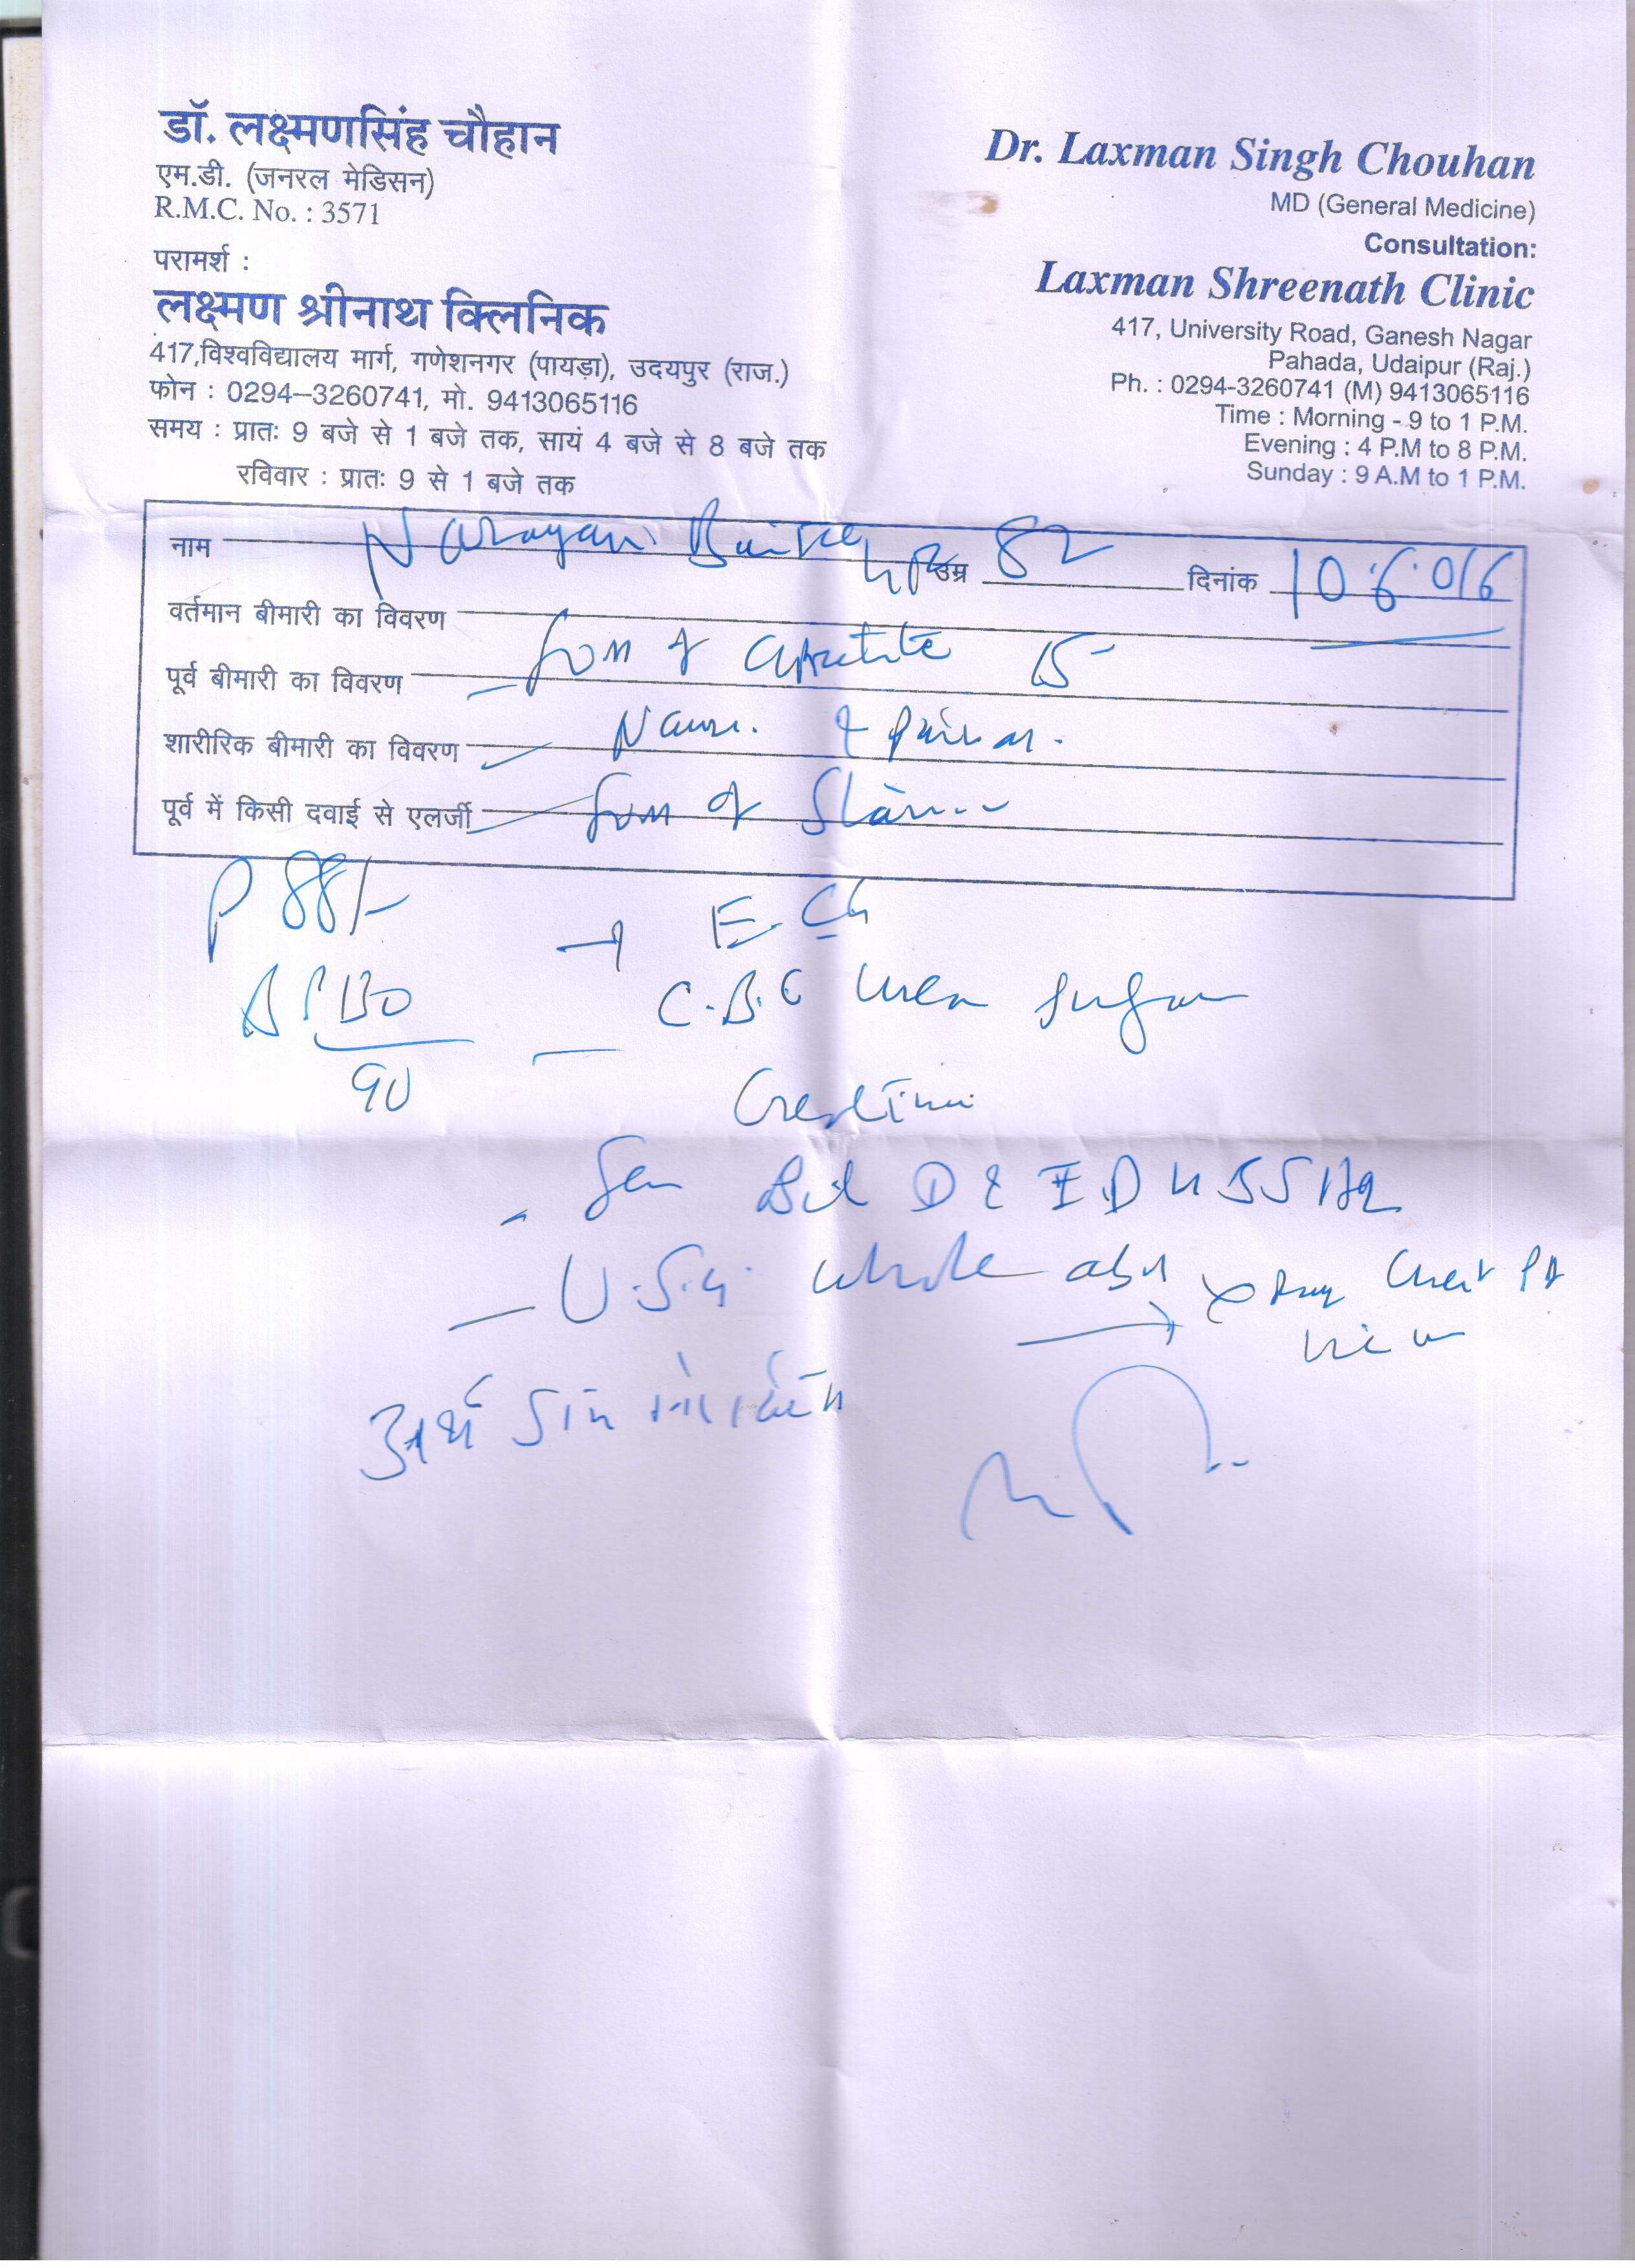 डॉ. लक्ष्मणसिंह चौहान
एम.डी. (जनरल मेडिसन)
R.M.C. No. : 3571
परामर्श :
लक्ष्मण श्रीनाथ क्लिनिक
417,विश्वविद्यालय मार्ग, गणेशनगर (पायड़ा), उदयपुर (राज.)
फोन : 0294–3260741, मो. 9413065116
समय : प्रातः 9 बजे से 1 बजे तक, सायं 4 बजे से 8 बजे तक
रविवार : प्रातः 9 से 1 बजे तक
Dr. Laxman Singh Chouhan
MD (General Medicine)
Consultation:
Laxman Shreenath Clinic
417, University Road, Ganesh Nagar
Pahada, Udaipur (Raj.)
Ph. : 0294-3260741 (M) 9413065116
Time : Morning - 9 to 1 P.M.
Evening : 4 P.M to 8 P.M.
Sunday : 9 A.M to 1 P.M.
नाम Narayani उम्र 82 दिनांक 10.6.016
वर्तमान बीमारी का विवरण
of appetite 15
पूर्व बीमारी का विवरण
शारीरिक बीमारी का विवरण
पूर्व में किसी दवाई से एलर्जी of
P 88/-
E.CG
BP 130
90
C.B.C Urea Sugar
Creatinine
Bil D & ID
U.S.G. whole abd
X Ray Chest PA
view